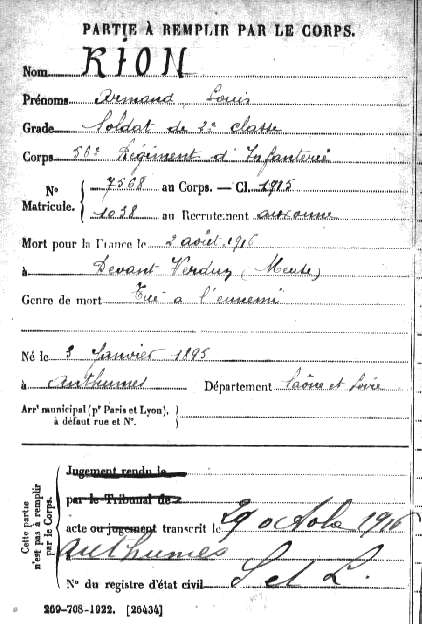 PARTIE À REMPLIR PAR LE CORPS.
Nom RION
Prénoms Armand, Louis
Grade Soldat de 2e classe
Corps 56e Régiment d'Infanterie
N° Matricule. 7568 au Corps. — Cl. 1915
1038 au Recrutement Auxonne
Mort pour la France le 2 août 1916
à Devant Verdun (Meuse)
Genre de mort Tué à l'ennemi
Né le 3 Janvier 1895
à Authumes Département Saône et Loire
Arrt municipal (pr Paris et Lyon),
à défaut rue et N°.
Cette partie n'est pas à remplir par le Corps.
Jugement rendu le
par le Tribunal de
acte ou jugement transcrit le 29 octobre 1916
à Authumes
N° du registre d'état civil S et L.
269-708-1922. [26434]